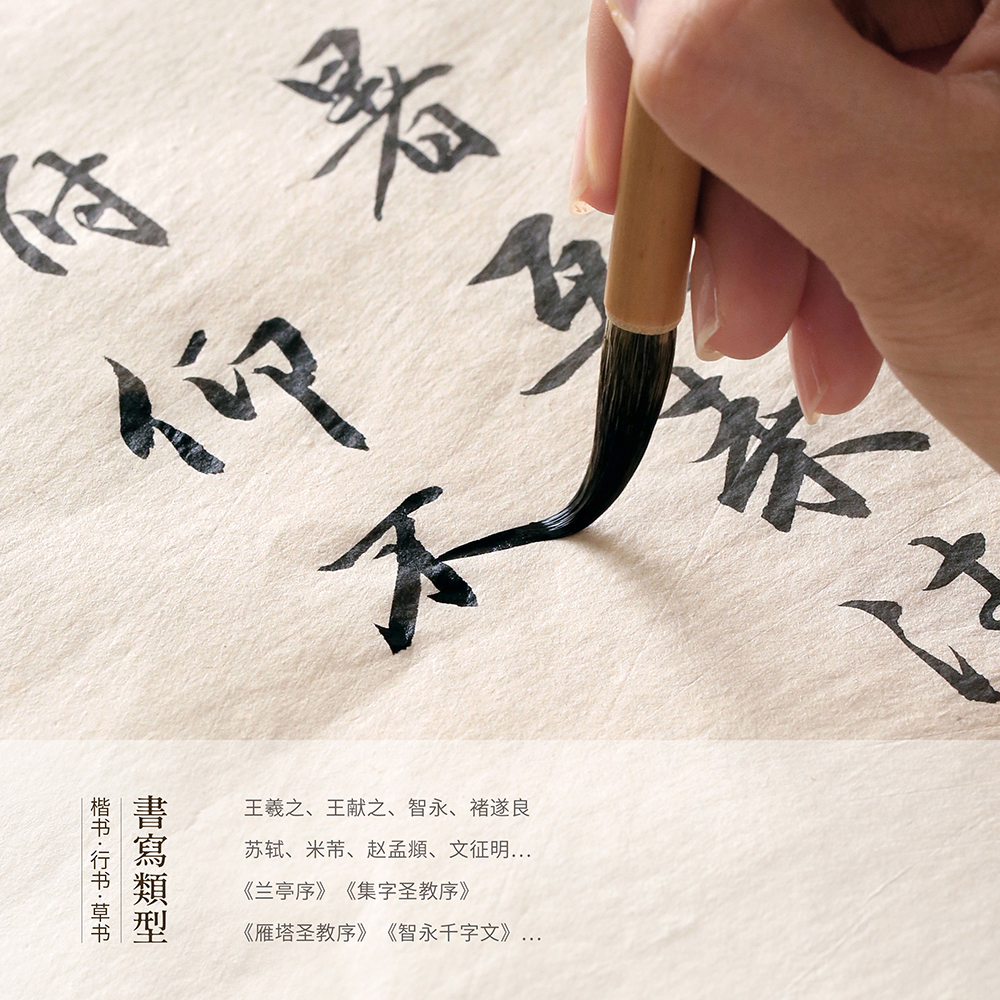 暑
仰
不
書寫類型
楷书·行书·草书
王羲之、王献之、智永、褚遂良
苏轼、米芾、赵孟頫、文征明...
《兰亭序》《集字圣教序》
《雁塔圣教序》《智永千字文》...